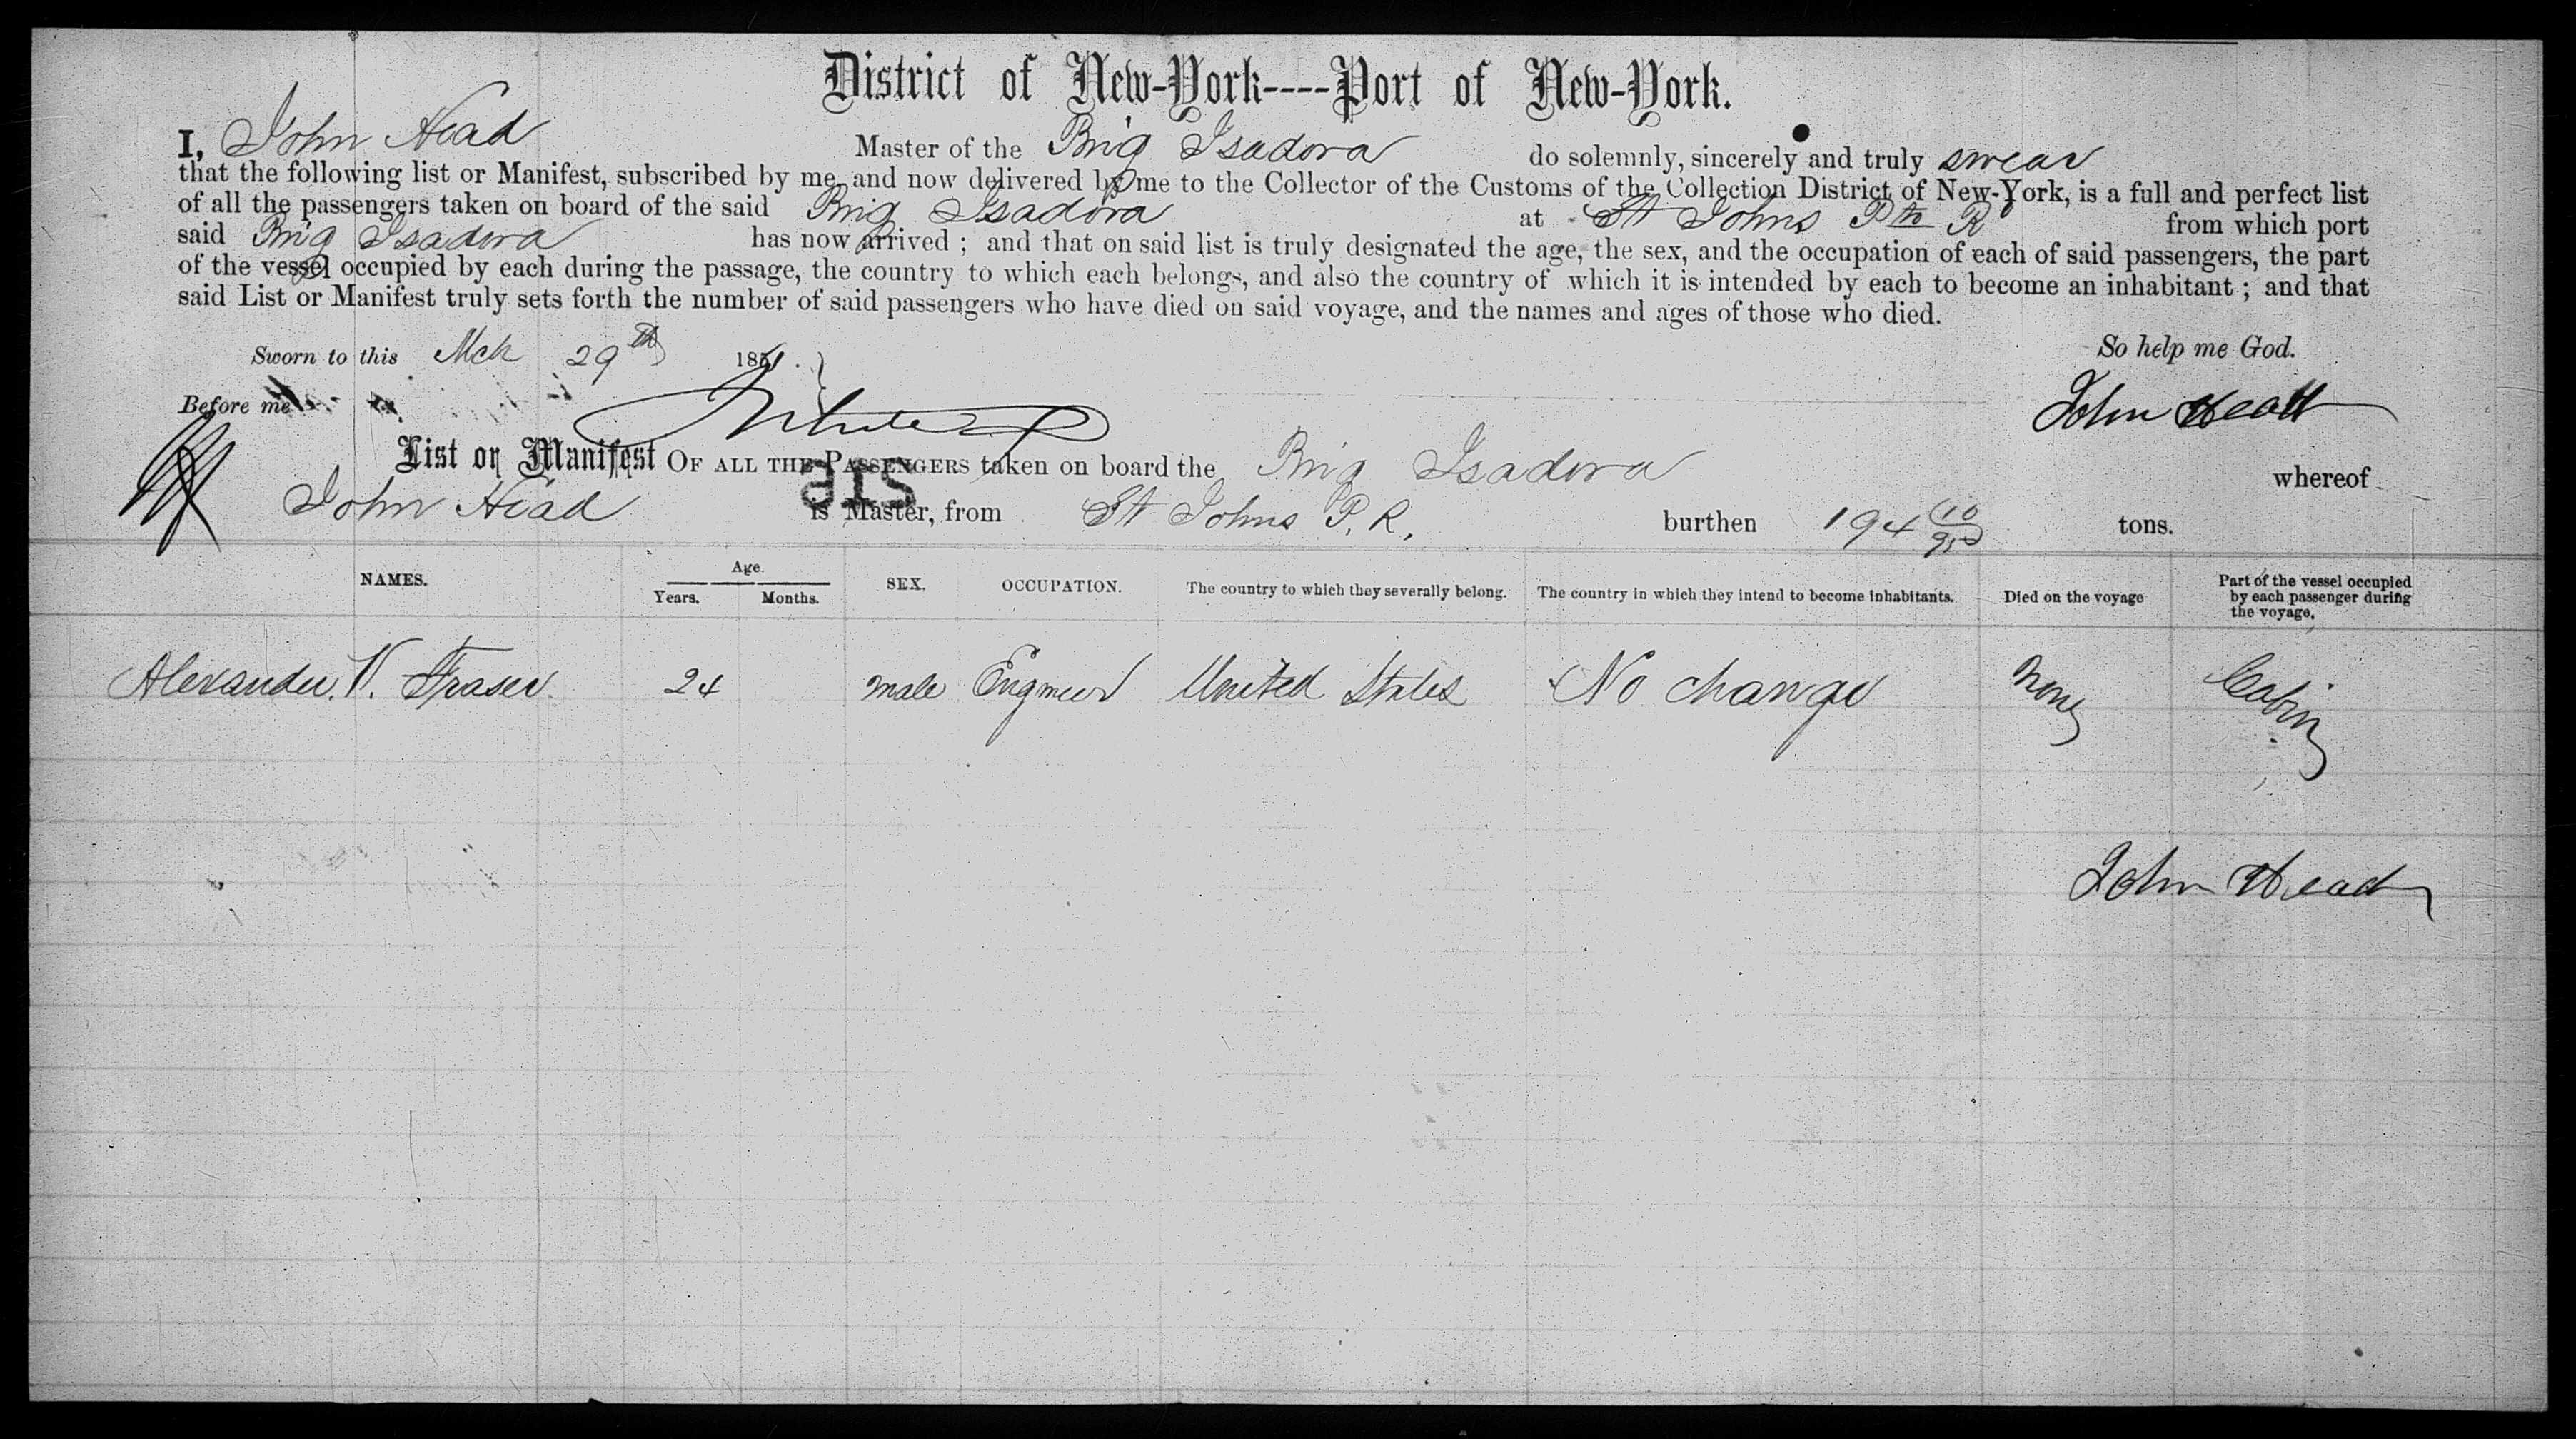 District of New-York----Port of New-York.
I, John Head Master of the Brig Isadora do solemnly, sincerely and truly swear
that the following list or Manifest, subscribed by me and now delivered by me to the Collector of the Customs of the Collection District of New-York, is a full and perfect list
of all the passengers taken on board of the said Brig Isadora at St Johns Pto R from which port
said Brig Isadora has now arrived ; and that on said list is truly designated the age, the sex, and the occupation of each of said passengers, the part
of the vessel occupied by each during the passage, the country to which each belongs, and also the country of which it is intended by each to become an inhabitant ; and that
said List or Manifest truly sets forth the number of said passengers who have died on said voyage, and the names and ages of those who died.
Sworn to this Mch 29th 18
So help me God.
Before me
John Head
List or Manifest OF ALL THE PASSENGERS taken on board the Brig Isadora whereof
215
John Head is Master, from St Johns P. R. burthen 194 10/95 tons.
NAMES. Age. Years. Months. SEX. OCCUPATION. The country to which they severally belong. The country in which they intend to become inhabitants. Died on the voyage Part of the vessel occupied by each passenger during the voyage.
Alexander. V. Fraser. 24 male Engineer United States No change None Cabin
John Head